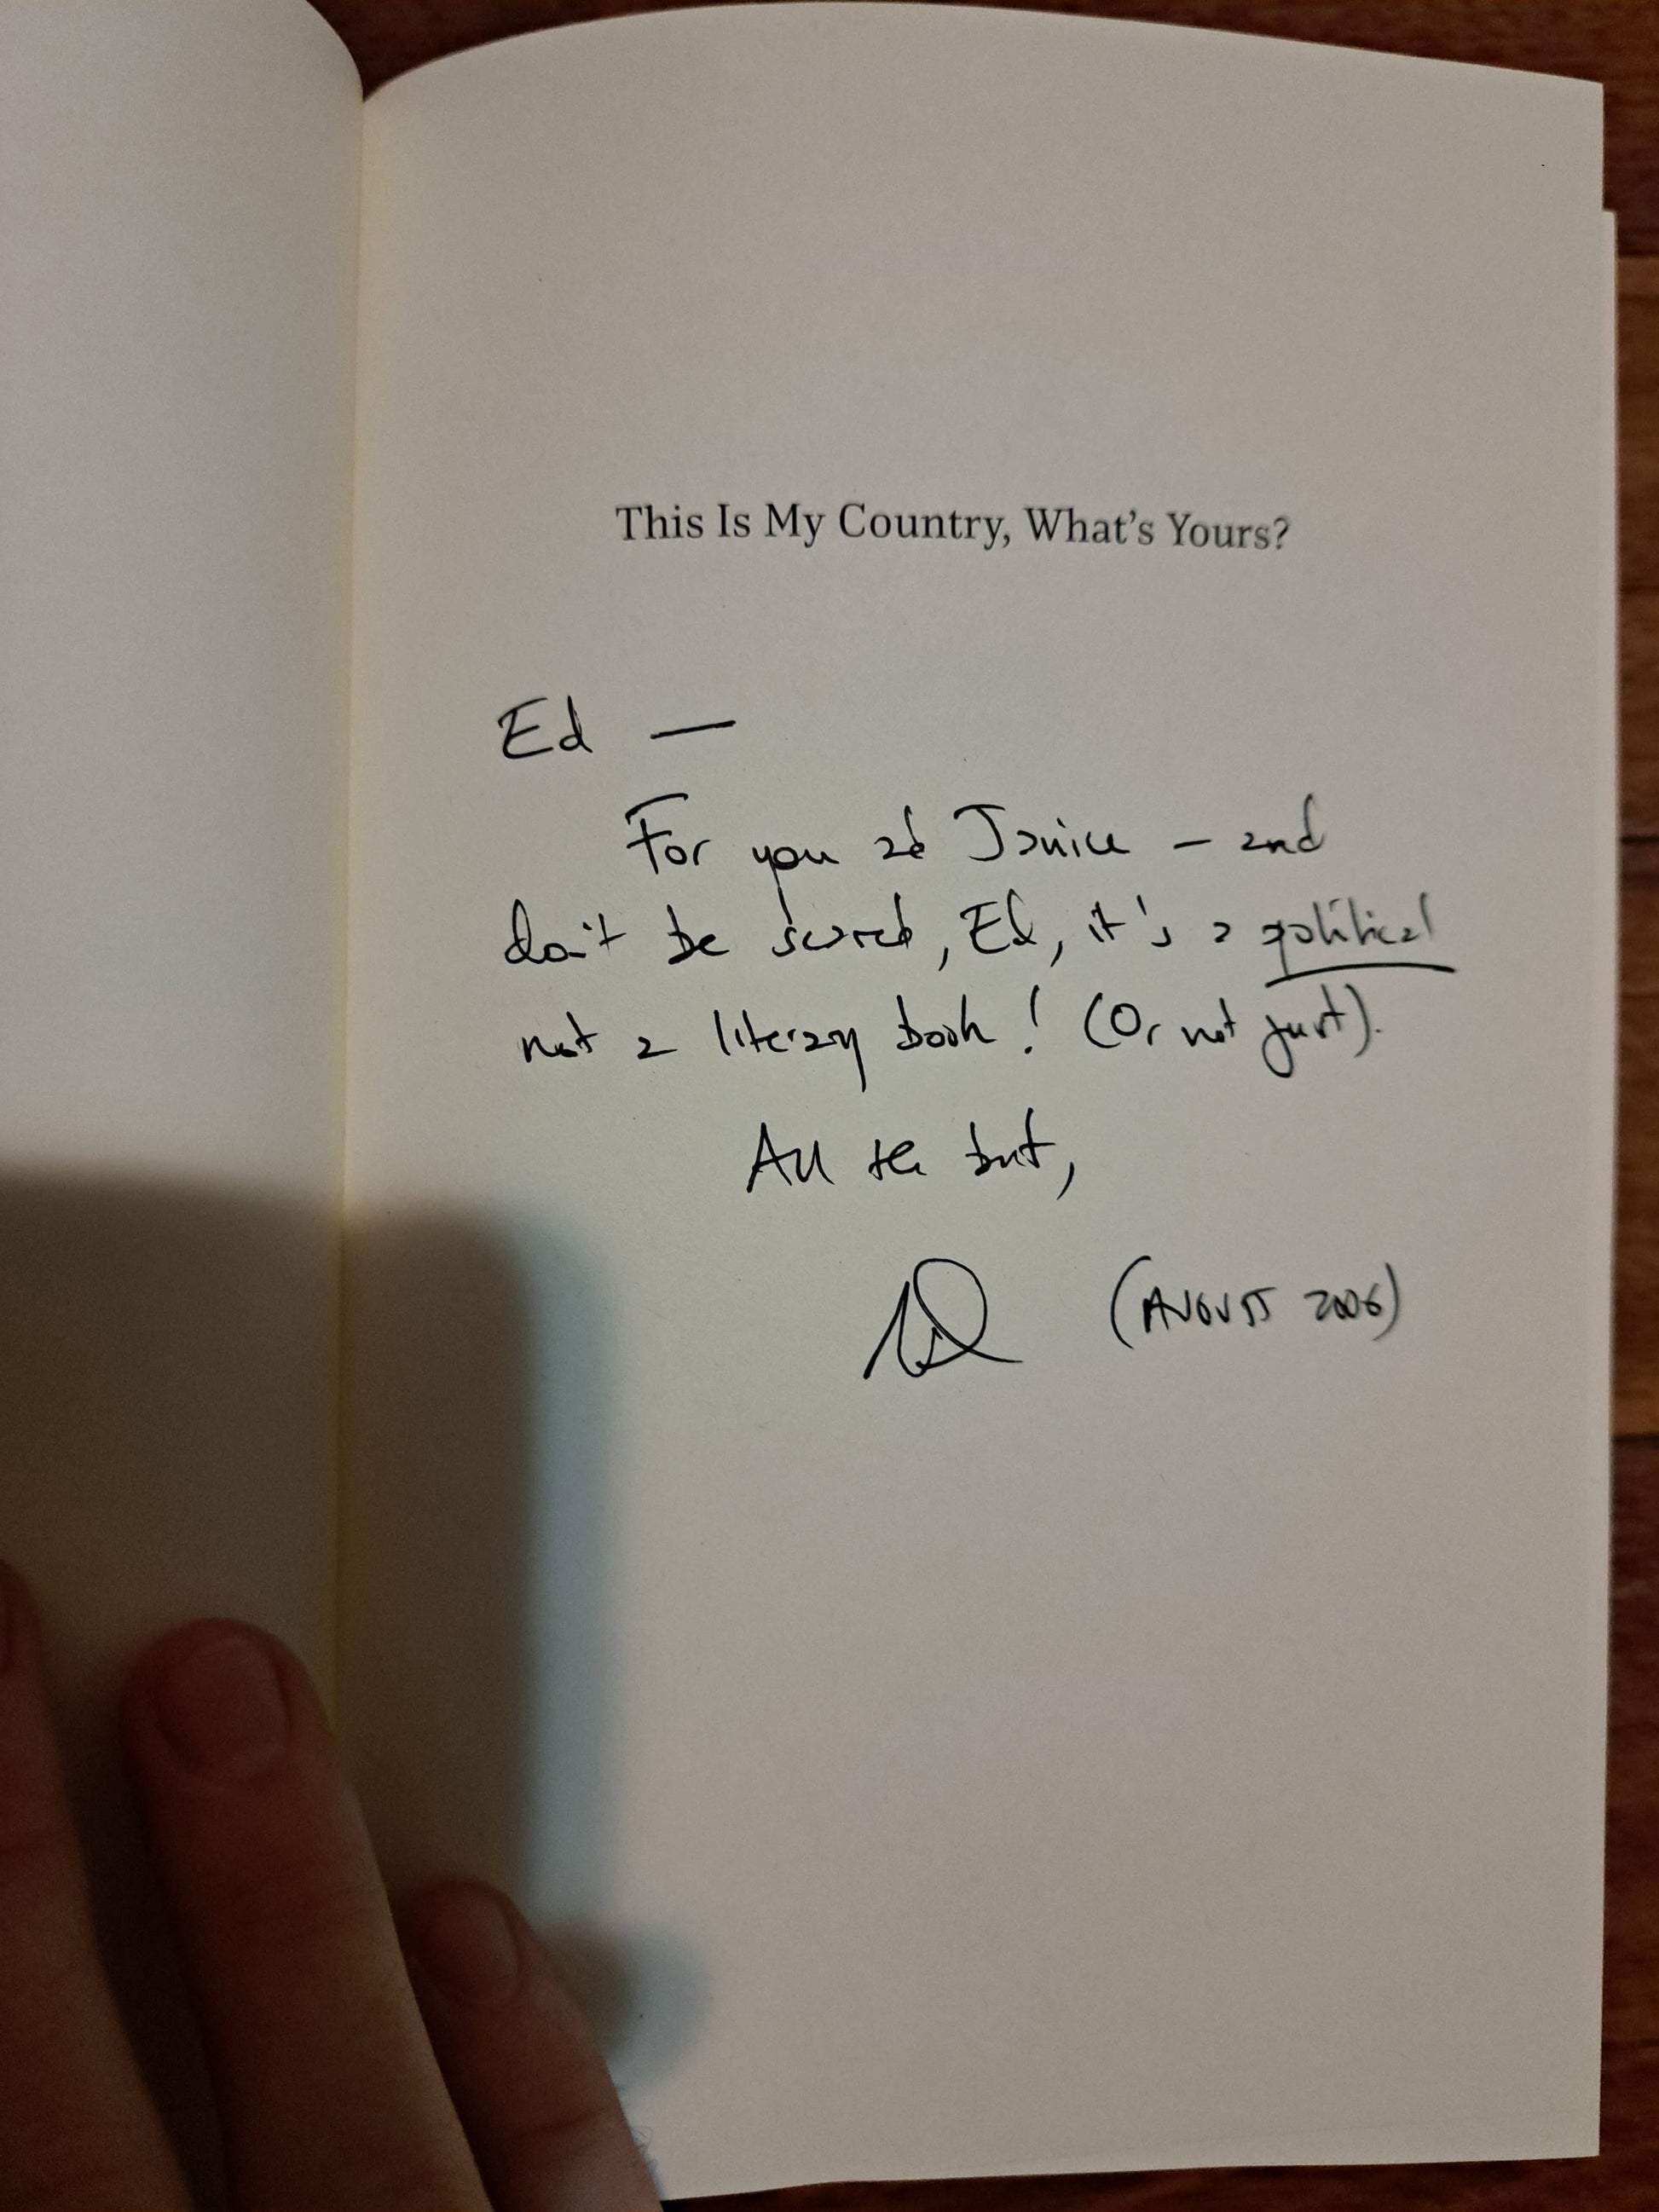 This Is My Country, What's Yours?
Ed —
For you ad Janice – and
don't be scared, Ed, it's a political
not a literary book! (Or not just).
All the best,
(AUGUST 2006)